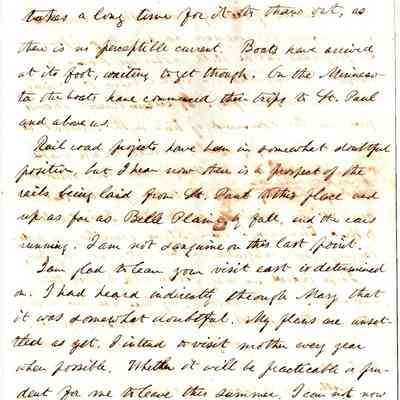 takes a long time for it to thaw out, as
there is no perceptible current. Boats have arrived
at its foot, waiting to get though. On the Minneso-
ta the boats have commenced their trips to St. Paul
and above us.
Rail road projects have been in somewhat doubtful
position, but I hear now there is a prospect of the
rails being laid from St. Paul to this place and
up as far as Belle Plain by fall, and the cars
running. I am not sanguine on this last point.
I am glad to learn your visit east is determined
on. I had heard indirectly through Mary that
it was somewhat doubtful. My plans are unset-
tled as yet. I intend to visit mother every year
when possible. Whether it will be practicable or pru-
dent for me to leave this summer, I can not now